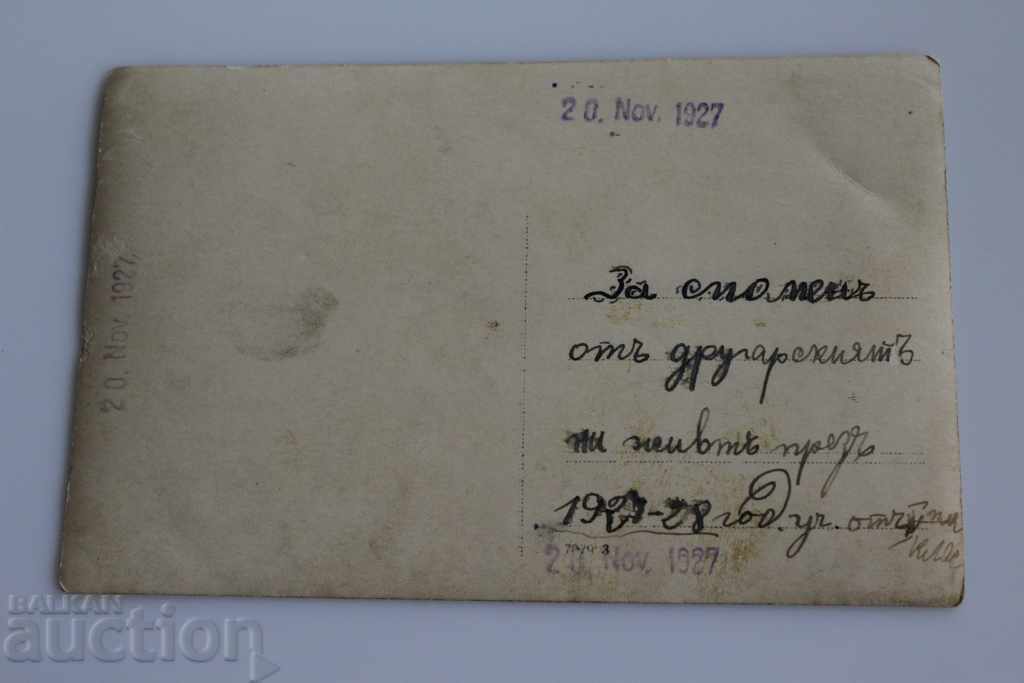 20. Nov. 1927
20. Nov. 1927
За споменъ
отъ другарскиятъ
ни живтъ презъ
1927-28 год. уч. отъ
20. Nov. 1927
BALKAN
auction